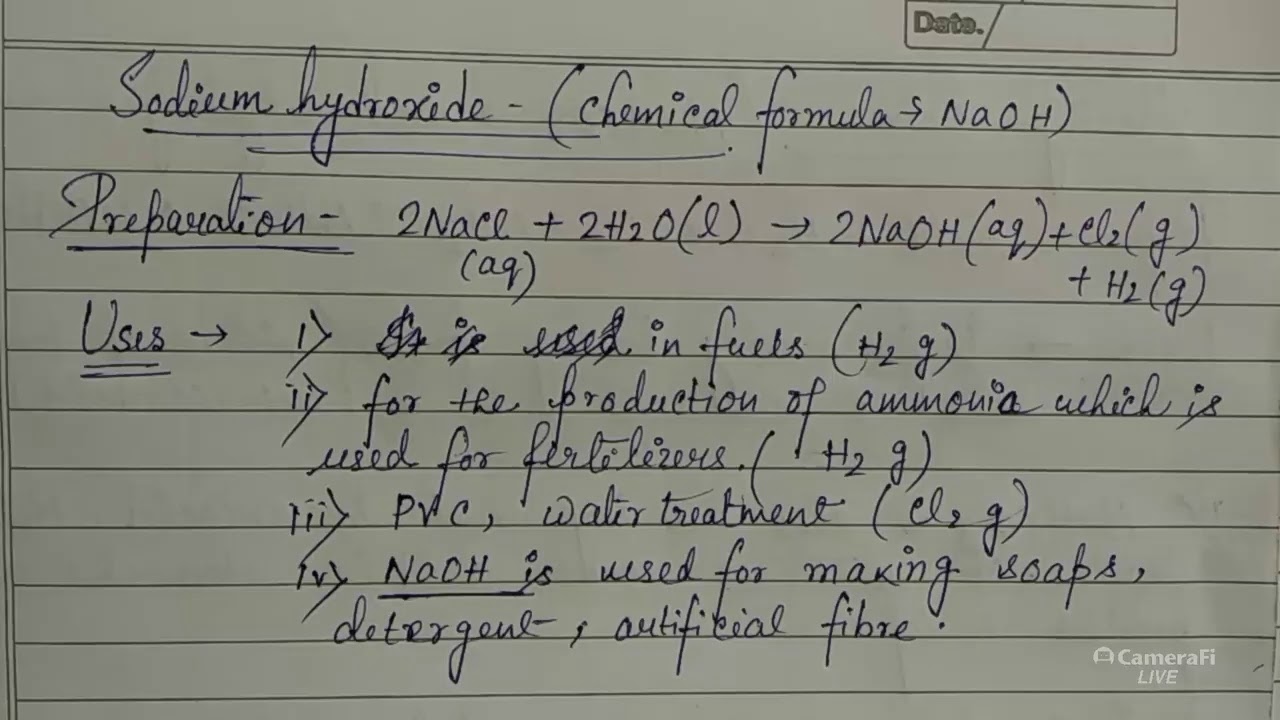 Date.
Sodium hydroxide - (Chemical formula → NaOH)
Preparation - 2NaCl + 2H2O(l) → 2NaOH(aq) + Cl2(g)
(aq) + H2(g)
Uses → i) is used in fuels (H2 g)
ii) for the production of ammonia which is
used for fertilizers. ( H2 g)
iii) PVC, water treatment (Cl2 g)
iv) NaOH is used for making soaps,
detergent, artificial fibre.
CameraFi
LIVE